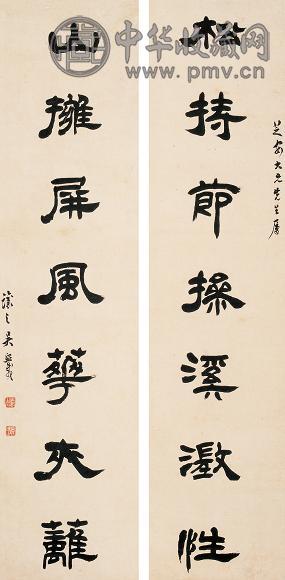 芝安大兄先生屬
松持節操溪澂性
山擁屏風華夾蘺
讓之吳熙載
中华收藏网
www.pmv.cn